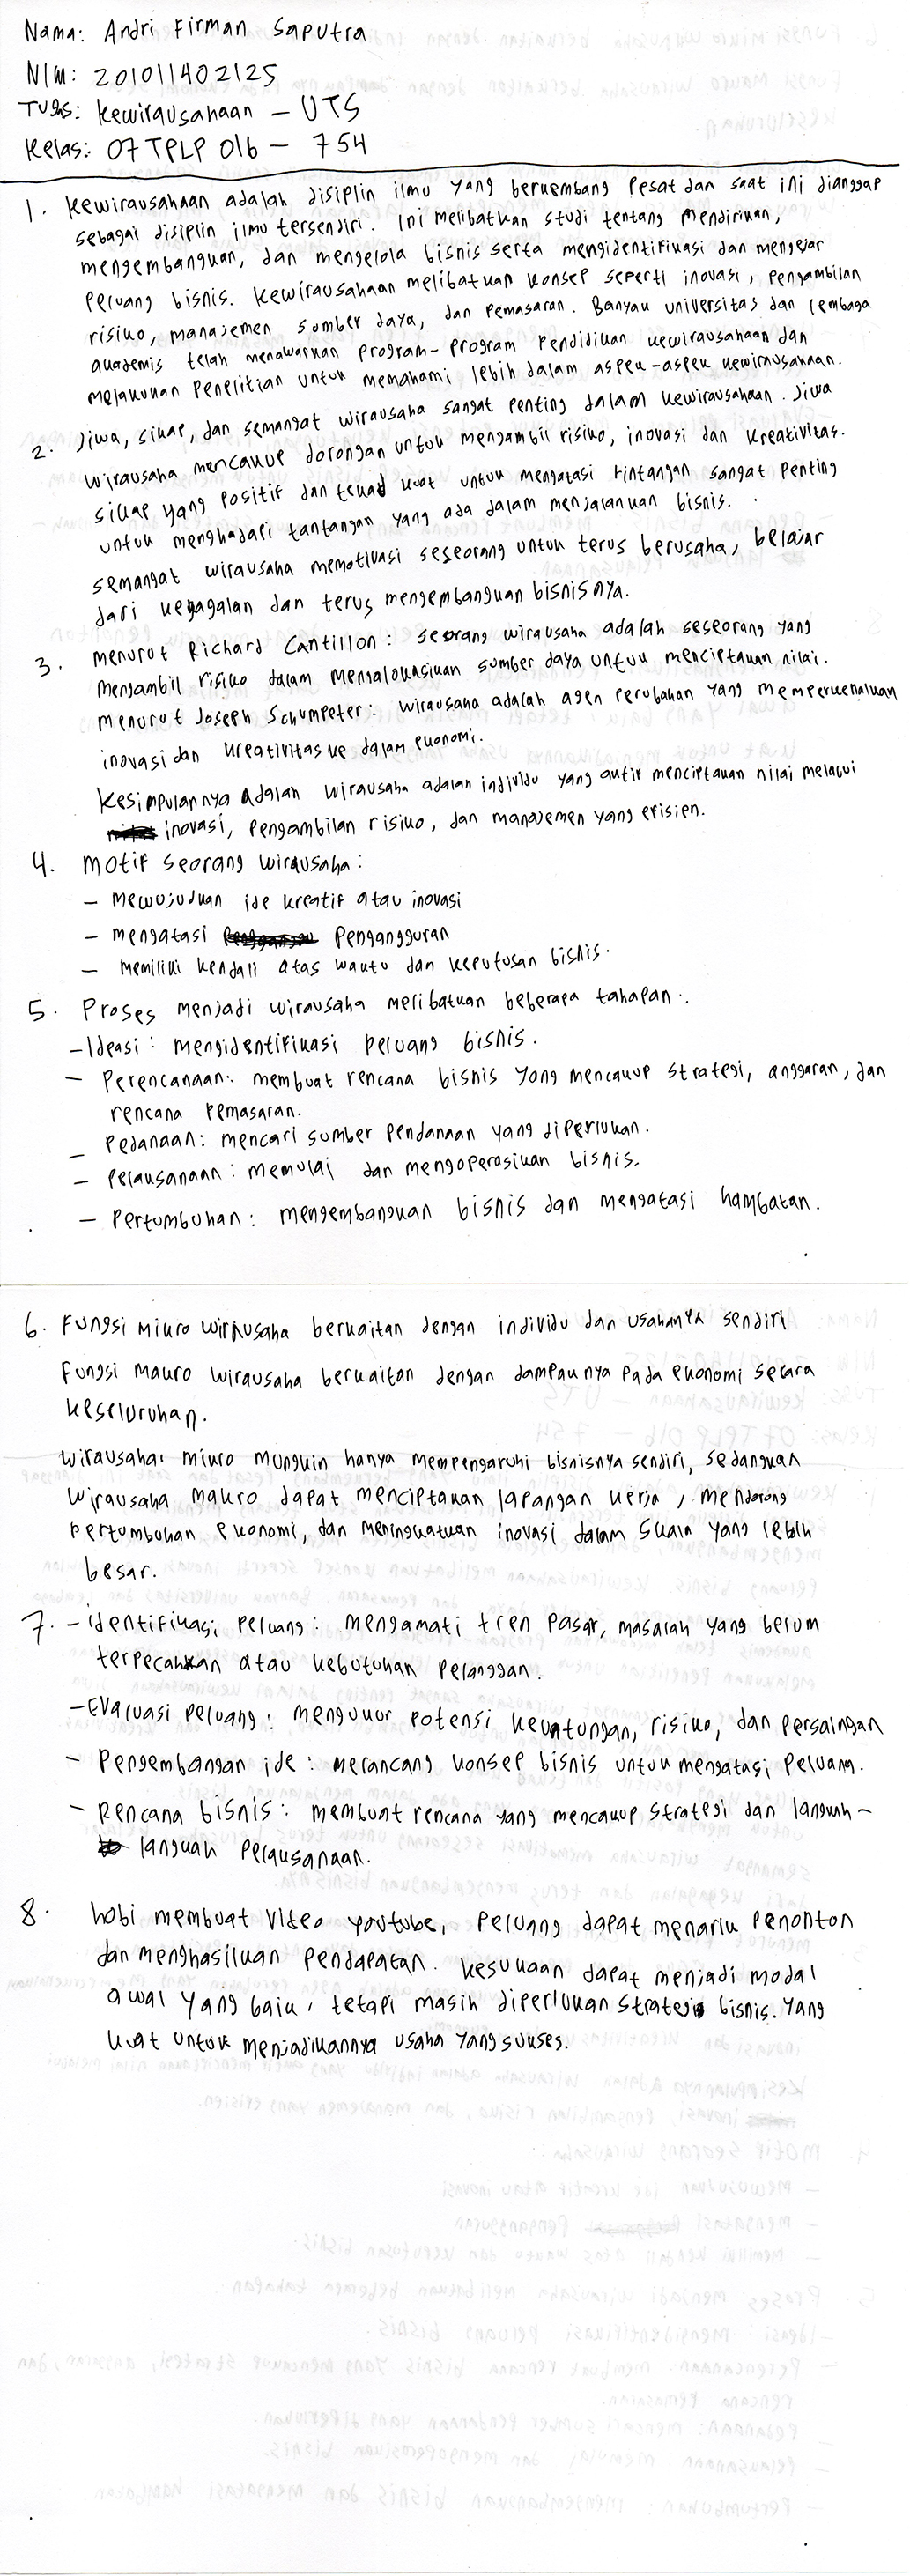 Nama: Andri Firman Saputra
NIM: 201011402125
Tugas: Kewirausahaan - UTS
Kelas: 07 TPLP 016 - 754
1. Kewirausahaan adalah disiplin ilmu yang berkembang pesat dan saat ini dianggap
sebagai disiplin ilmu tersendiri. Ini melibatkan studi tentang mendirikan,
mengembangkan, dan mengelola bisnis serta mengidentifikasi dan mengejar
peluang bisnis. Kewirausahaan melibatkan konsep seperti inovasi, pengambilan
risiko, manajemen sumber daya, dan pemasaran. Banyak universitas dan lembaga
akademis telah menawarkan program-program pendidikan kewirausahaan dan
melakukan penelitian untuk memahami lebih dalam aspek-aspek kewirausahaan.
2. Jiwa, sikap, dan semangat wirausaha sangat penting dalam kewirausahaan. Jiwa
wirausaha mencakup dorongan untuk mengambil risiko, inovasi dan kreativitas.
sikap yang positif dan tekad kuat untuk mengatasi rintangan sangat penting
untuk menghadapi tantangan yang ada dalam menjalankan bisnis.
semangat wirausaha memotivasi seseorang untuk terus berusaha, belajar
dari kegagalan dan terus mengembangkan bisnisnya.
3. menurut Richard Cantillon: seorang wirausaha adalah seseorang yang
mengambil risiko dalam mengalokasikan sumber daya untuk menciptakan nilai.
menurut Joseph Schumpeter: wirausaha adalah agen perubahan yang memperkenalkan
inovasi dan kreativitas ke dalam ekonomi.
Kesimpulannya adalah wirausaha adalah individu yang aktif menciptakan nilai melalui
inovasi, pengambilan risiko, dan manajemen yang efisien.
4. Motif seorang wirausaha:
- Mewujudkan ide kreatif atau inovasi
- mengatasi Pengangguran
- memiliki kendali atas waktu dan keputusan bisnis.
5. Proses menjadi wirausaha melibatkan beberapa tahapan:
- Ideasi: mengidentifikasi peluang bisnis.
- Perencanaan: membuat rencana bisnis yang mencakup strategi, anggaran, dan
rencana pemasaran.
- Pedanaan: mencari sumber pendanaan yang diperlukan.
- Pelaksanaan: memulai dan mengoperasikan bisnis.
- Pertumbuhan: mengembangkan bisnis dan mengatasi hambatan.
6. Fungsi mikro wirausaha berkaitan dengan individu dan usahanya sendiri
Fungsi makro wirausaha berkaitan dengan dampaknya pada ekonomi secara
keseluruhan.
wirausaha mikro mungkin hanya mempengaruhi bisnisnya sendiri, sedangkan
wirausaha makro dapat menciptakan lapangan kerja, mendorong
pertumbuhan ekonomi, dan meningkatkan inovasi dalam skala yang lebih
besar.
7. - identifikasi peluang: mengamati tren pasar, masalah yang belum
terpecahkan atau kebutuhan pelanggan.
- Evaluasi peluang: mengukur potensi keuntungan, risiko, dan persaingan
- Pengembangan ide: merancang konsep bisnis untuk mengatasi peluang.
- Rencana bisnis: membuat rencana yang mencakup strategi dan langkah-
langkah pelaksanaan.
8. hobi membuat video youtube, peluang dapat menarik penonton
dan menghasilkan pendapatan. kesukaan dapat menjadi modal
awal yang baik, tetapi masih diperlukan strategi bisnis. yang
kuat untuk menjadikannya usaha yang sukses.